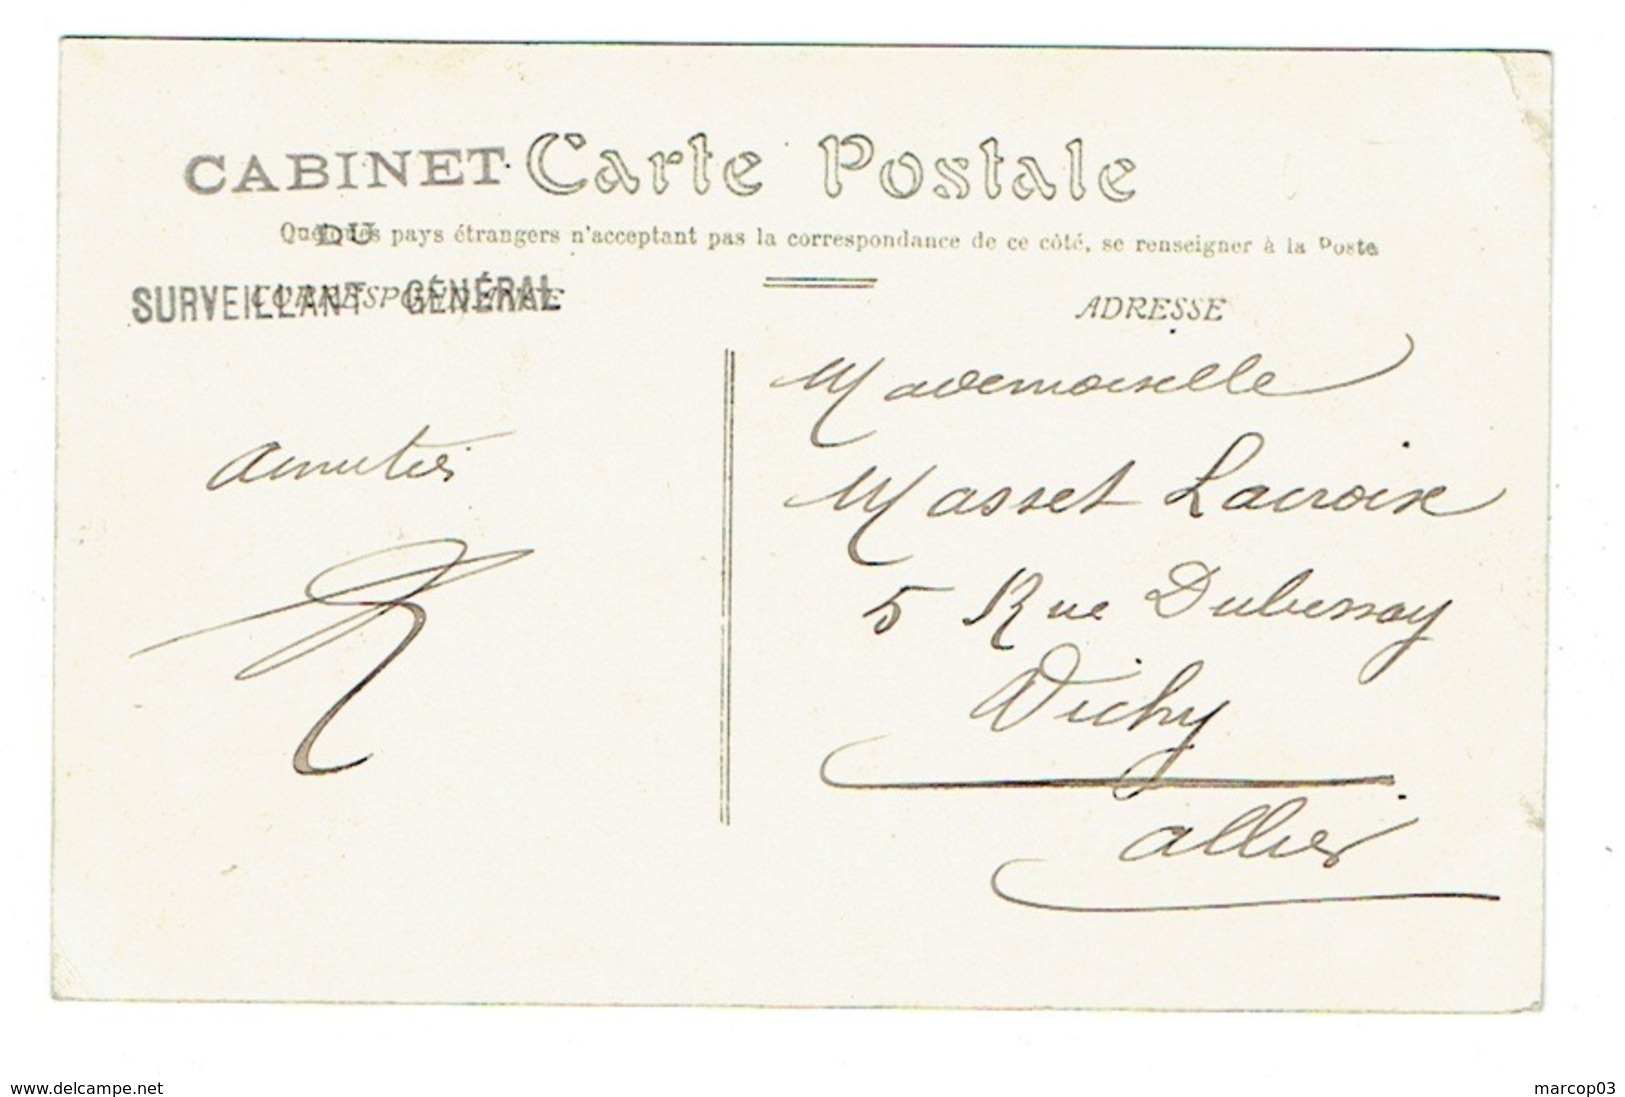 CABINET
DU
SURVEILLANT GÉNÉRAL
Carte Postale
Quelques pays étrangers n'acceptant pas la correspondance de ce côté, se renseigner à la Poste
CORRESPONDANCE
ADRESSE
Amitiés
Mademoiselle
Masset Lacroix
5 Rue Dubessay
Vichy
Allier
www.delcampe.net
marcop03